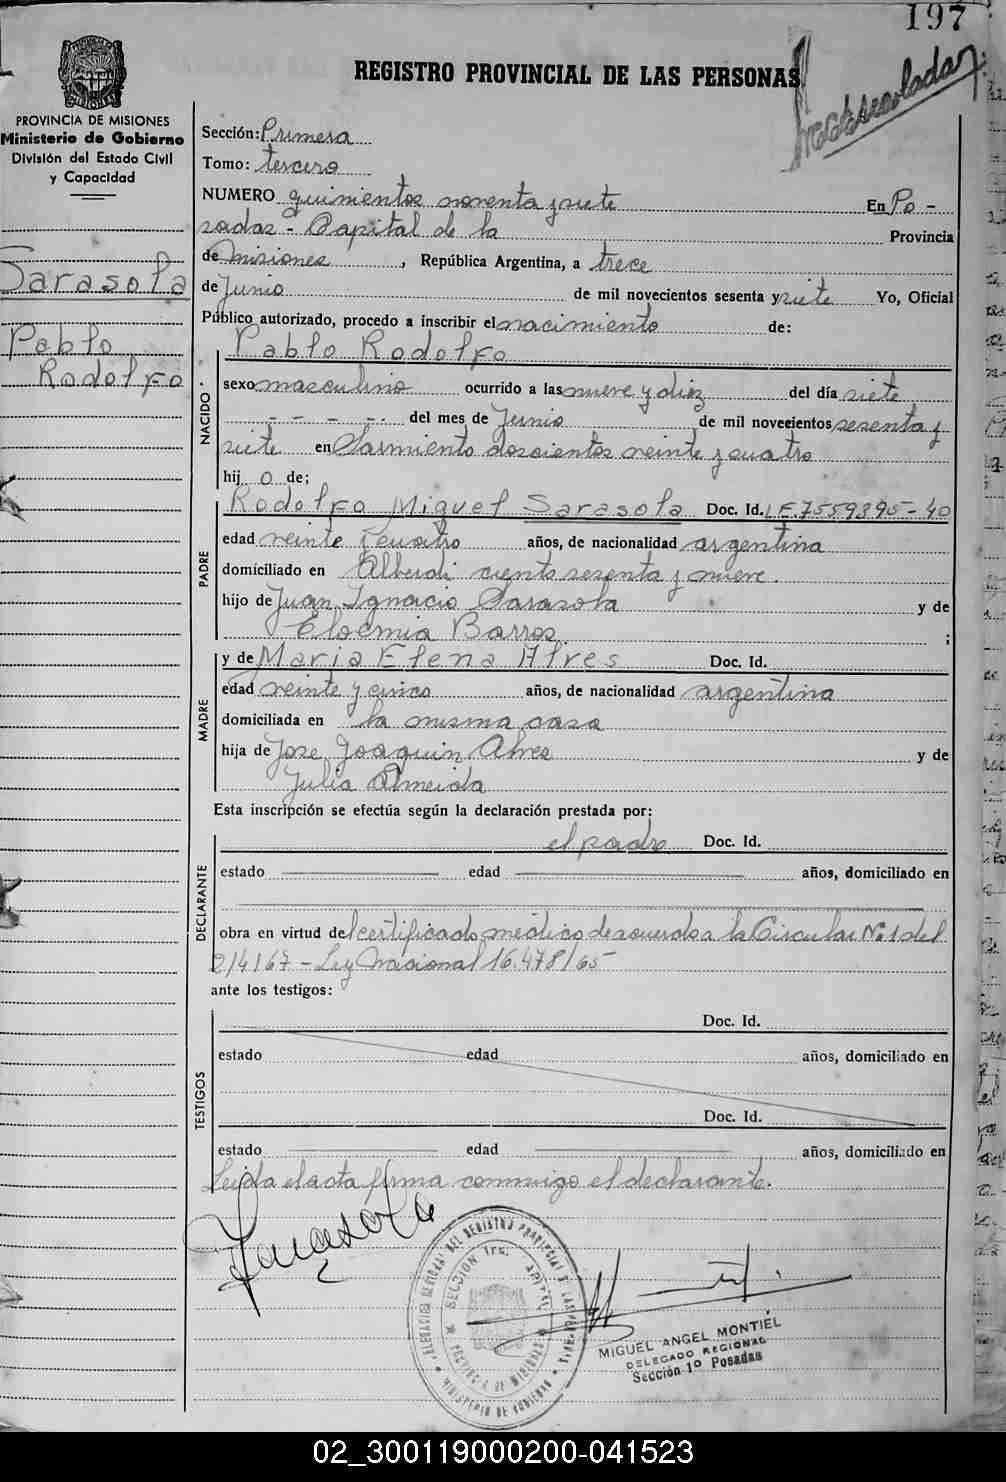 197
REGISTRO PROVINCIAL DE LAS PERSONAS
Matriculado
PROVINCIA DE MISIONES
Ministerio de Gobierno
División del Estado Civil
y Capacidad
Sarasola
Pablo
Rodolfo
Sección: Primera
Tomo: tercero
NUMERO quinientos noventa y siete En Po-
sadas - Capital de la Provincia
de Misiones, República Argentina, a trece
de Junio de mil novecientos sesenta y siete Yo, Oficial
Público autorizado, procedo a inscribir el nacimiento de:
Pablo Rodolfo
NACIDO
sexo masculino ocurrido a las nueve y diez del día siete
- - - - - del mes de Junio de mil novecientos sesenta y
siete en Sarmiento doscientos veinte y cuatro
hij o de;
PADRE
Rodolfo Miguel Sarasola Doc. Id. L.E. 7559395-40
edad veinte y cuatro años, de nacionalidad argentina
domiciliado en Alberdi ciento sesenta y nueve.
hijo de Juan Ignacio Sarasola y de
Eloemia Barros ;
MADRE
y de Maria Elena Alves Doc. Id.
edad veinte y cinco años, de nacionalidad argentina
domiciliada en la misma casa
hija de Jose Joaquin Alves y de
Julia Almeida
Esta inscripción se efectúa según la declaración prestada por:
DECLARANTE
el padre Doc. Id.
estado edad años, domiciliado en
obra en virtud del certificado médico de acuerdo a la Circular Nº 1 del
2/4/67 - Ley Nacional 16.478/65
ante los testigos:
TESTIGOS
Doc. Id.
estado edad años, domiciliado en
Doc. Id.
estado edad años, domiciliado en
Leida el acta firma conmigo el declarante.
Sarasola
MIGUEL ANGEL MONTIEL
DELEGADO REGIONAL
Sección 1º Posadas
02_300119000200-041523